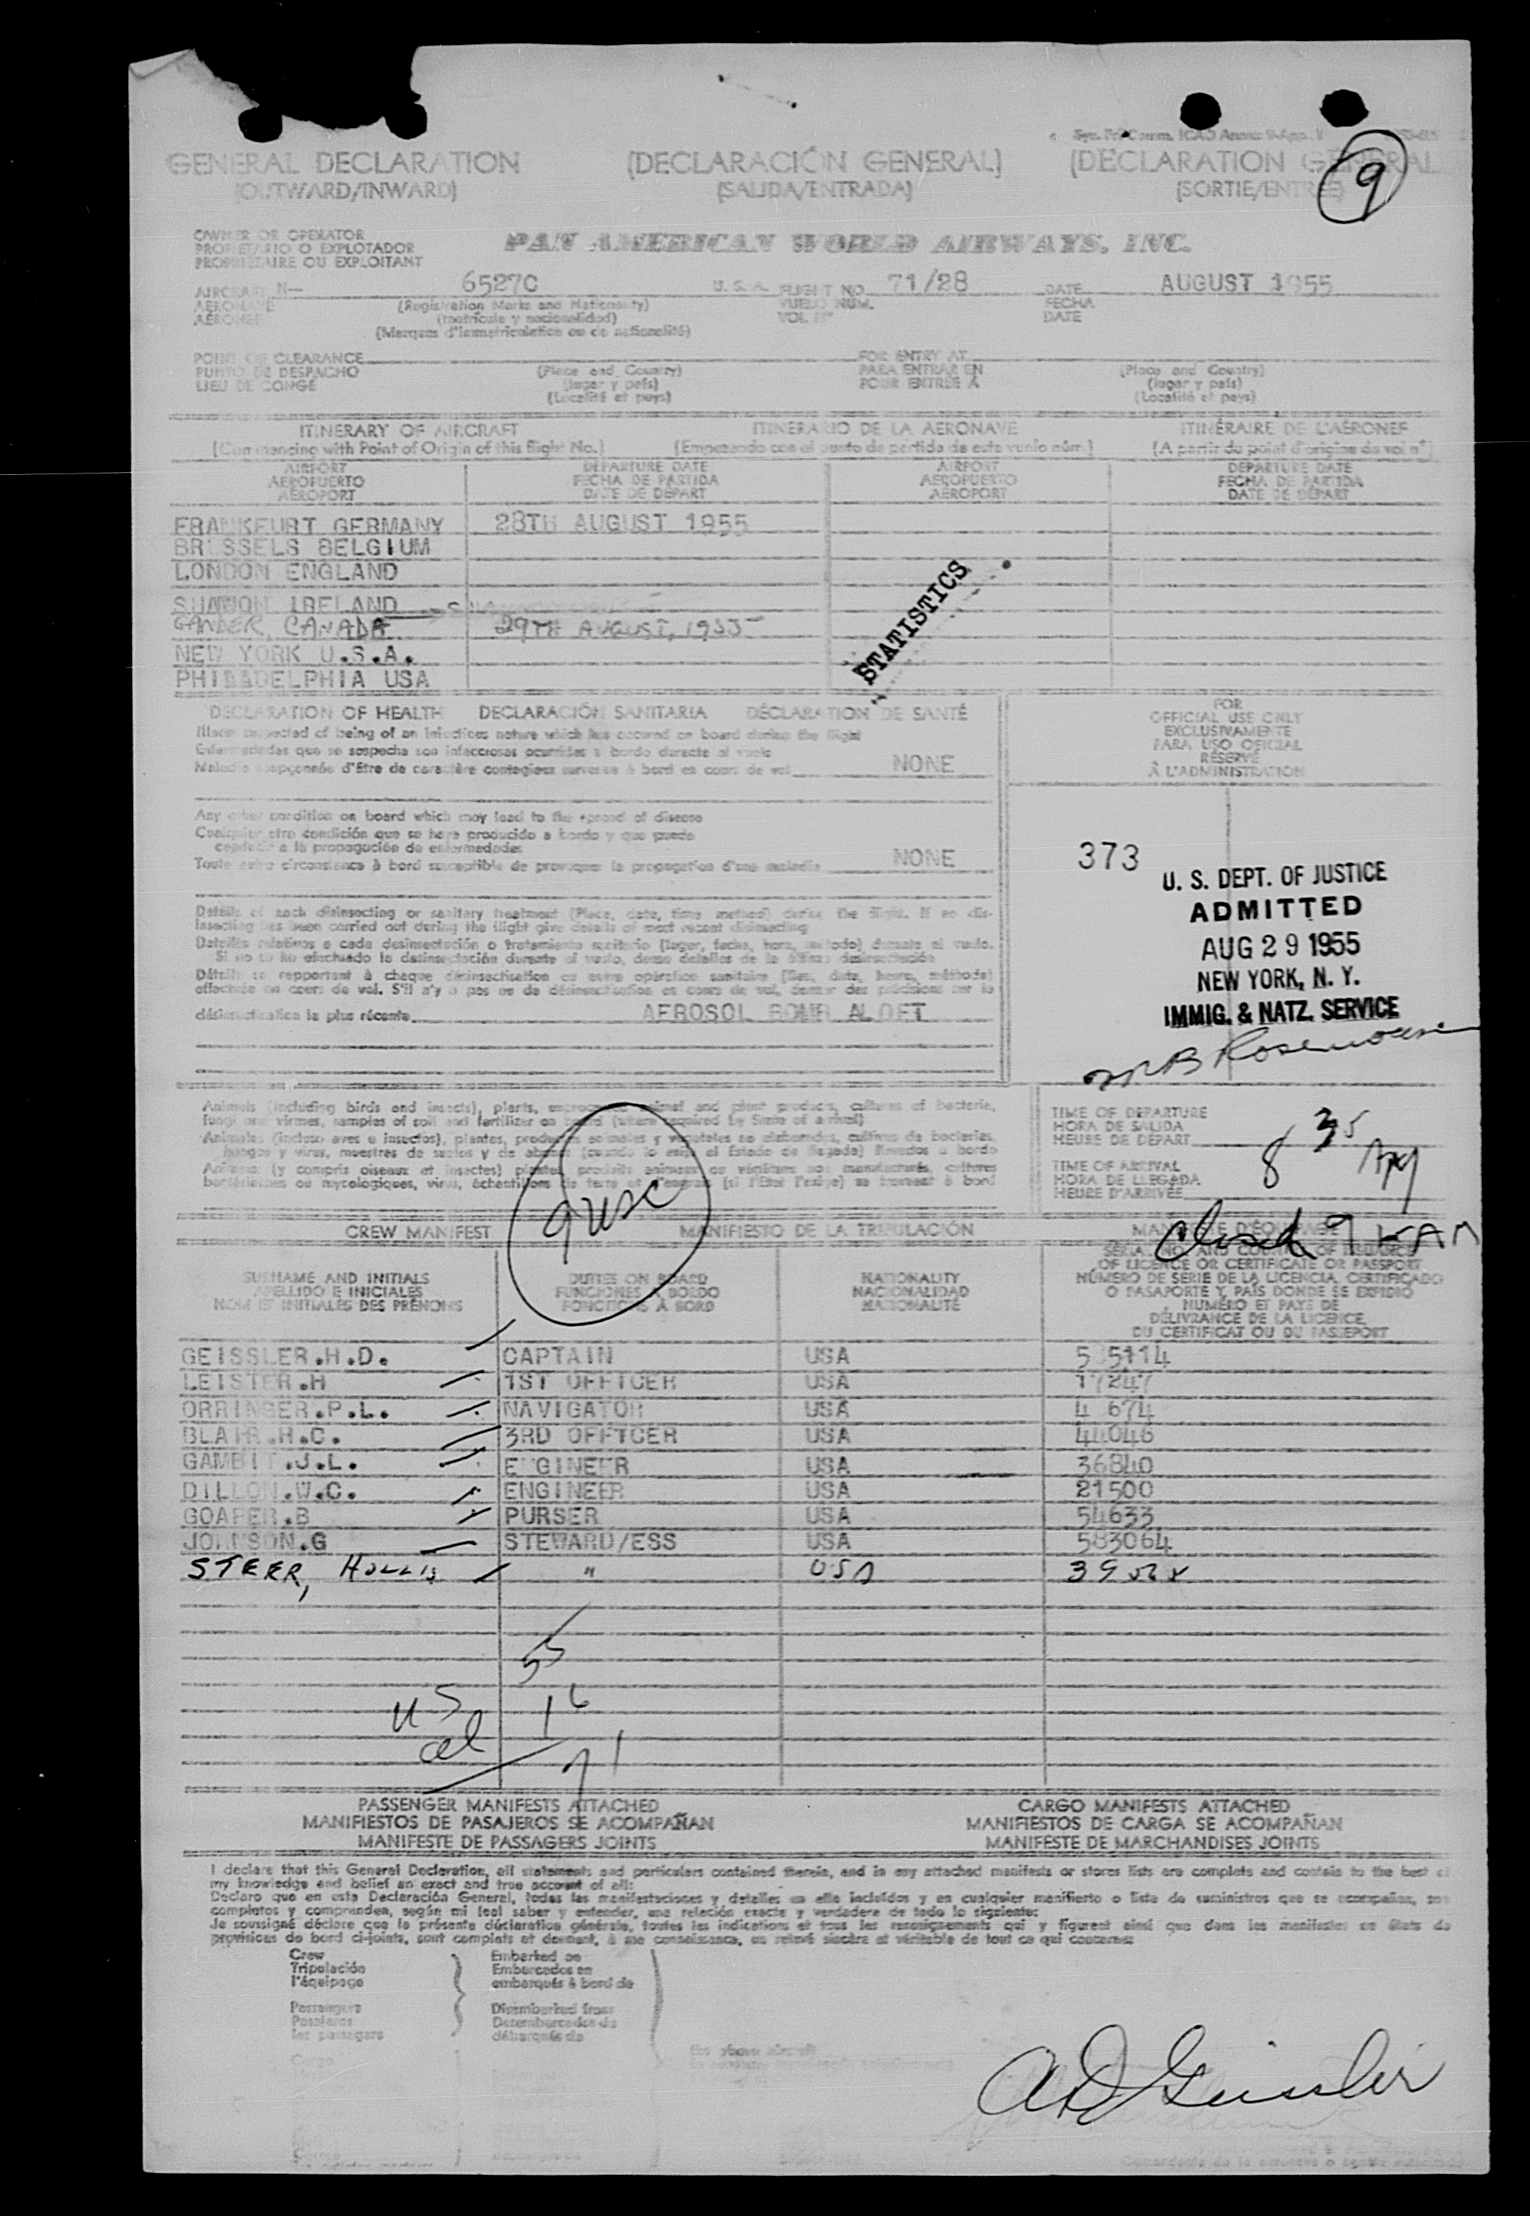 GENERAL DECLARATION (DECLARACIÓN GENERAL) (DECLARATION GENERAL
(OUTWARD/INWARD) (SALIDA/ENTRADA) (SORTIE/ENTRÉE)
9
OWNER OR OPERATOR
PROPIETARIO O EXPLOTADOR
PROPRIETAIRE OU EXPLOITANT
PAN AMERICAN WORLD AIRWAYS, INC.
AIRCRAFT N— 6527C U. S. A. FLIGHT NO. 71/28 DATE AUGUST 1955
AERONAVE (Registration Marks and Nationality) VUELO NÚM. FECHA
AÉRONEF (matrícula y nacionalidad) VOL Nº DATE
(Marques d'immatriculation ou de nationalité)
POINT OF CLEARANCE FOR ENTRY AT
PUNTO DE DESPACHO (Place and Country) PARA ENTRAR EN (Place and Country)
LIEU DE CONGÉ (lugar y país) POUR ENTRÉE À (lugar y país)
(Localité et pays) (Localité et pays)
ITINERARY OF AIRCRAFT ITINERARIO DE LA AERONAVE ITINÉRAIRE DE L'AÉRONEF
(Commencing with Point of Origin of this flight No.) (Empezando con el punto de partida de este vuelo núm.) (A partir du point d'origine du vol nº)
AIRPORT DEPARTURE DATE AIRPORT DEPARTURE DATE
AEROPUERTO FECHA DE PARTIDA AEROPUERTO FECHA DE PARTIDA
AÉROPORT DATE DE DÉPART AÉROPORT DATE DE DÉPART
FRANKFURT GERMANY 28TH AUGUST 1955
BRUSSELS BELGIUM
LONDON ENGLAND
SHANNON IRELAND
GANDER, CANADA 29TH AUGUST, 1955
NEW YORK U.S.A.
PHILADELPHIA USA
STATISTICS
DECLARATION OF HEALTH DECLARACIÓN SANITARIA DÉCLARATION DE SANTÉ
Illness suspected of being of an infectious nature which has occured on board during the flight
Enfermedades que se sospecha son infecciosas ocurridas a bordo durante el vuelo
Maladie soupçonnée d'être de caractère contagieux survenue à bord en cours de vol NONE
FOR
OFFICIAL USE ONLY
EXCLUSIVAMENTE
PARA USO OFICIAL
RÉSERVÉ
À L'ADMINISTRATION
Any other condition on board which may lead to the spread of disease
Cualquier otra condición que se haya producido a bordo y que pueda
conducir a la propagación de enfermedades
Toute autre circonstance à bord susceptible de provoquer la propagation d'une maladie NONE
373
U. S. DEPT. OF JUSTICE
ADMITTED
AUG 29 1955
NEW YORK, N. Y.
IMMIG. & NATZ. SERVICE
Details of each disinsecting or sanitary treatment (Place, date, time method) during the flight. If no dis-
insecting has been carried out during the flight give details of most recent disinsecting
Detalles relativos a cada desinsectación o tratamiento sanitario (lugar, fecha, hora, método) durante el vuelo.
Si no se ha efectuado la desinsectación durante el vuelo, dense detalles de la última desinsectación
Détails se rapportant à chaque désinsectisation ou autre opération sanitaire (lieu, date, heure, méthode)
effectuée en cours de vol. S'il n'y a pas eu de désinsectisation en cours de vol, donner des précisions sur la
désinsectisation la plus récente AEROSOL BOMB ALOFT
Animals (including birds and insects), plants, unprocessed animal and plant products, cultures of bacteria,
fungi and viruses, samples of soil and fertilizer on board (where required by State of arrival)
Animales (incluso aves e insectos), plantas, productos animales y vegetales no elaborados, cultivos de bacterias,
hongos y virus, muestras de suelos y de abonos (cuando lo exija el Estado de llegada) llevados a bordo
Animaux (y compris oiseaux et insectes) plantes, produits animaux ou végétaux non manufacturés, cultures
bactériennes ou mycologiques, virus, échantillons de terre et d'engrais (si l'État l'exige) se trouvant à bord
TIME OF DEPARTURE
HORA DE SALIDA
HEURE DE DÉPART
TIME OF ARRIVAL
HORA DE LLEGADA
HEURE D'ARRIVÉE
8 35 AM
9 usc
closed 9
CREW MANIFEST MANIFIESTO DE LA TRIPULACIÓN MANIFESTE D'ÉQUIPAGE
SURNAME AND INITIALS
APELLIDO E INICIALES
NOM ET INITIALES DES PRÉNOMS
DUTIES ON BOARD
FUNCIONES A BORDO
FONCTIONS À BORD
NATIONALITY
NACIONALIDAD
NATIONALITÉ
SERIAL NO. AND COUNTRY OF ISSUANCE
OF LICENCE OR CERTIFICATE OR PASSPORT
NÚMERO DE SERIE DE LA LICENCIA, CERTIFICADO
O PASAPORTE Y PAÍS DONDE SE EXPIDIÓ
NUMÉRO ET PAYS DE
DÉLIVRANCE DE LA LICENCE,
DU CERTIFICAT OU DU PASSEPORT
GEISSLER.H.D. CAPTAIN USA
LEISTER.H 1ST OFFICER USA 17247
ORRINGER.P.L. NAVIGATOR USA
BLAIR.H.C. 3RD OFFICER USA 44046
.J.L. ENGINEER USA 36840
DILLON.W.C. ENGINEER USA 21500
GOAPER.B PURSER USA 54633
JOHNSON.G STEWARD/ESS USA 583064
STEER, HOLLIS " USA
55
US 16
cel 71
PASSENGER MANIFESTS ATTACHED CARGO MANIFESTS ATTACHED
MANIFIESTOS DE PASAJEROS SE ACOMPAÑAN MANIFIESTOS DE CARGA SE ACOMPAÑAN
MANIFESTE DE PASSAGERS JOINTS MANIFESTE DE MARCHANDISES JOINTS
I declare that this General Declaration, all statements and particulars contained therein, and in any attached manifests or stores lists are complete and contain to the best of
my knowledge and belief an exact and true account of all:
Declaro que en esta Declaración General, todas las manifestaciones y detalles en ella incluídos y en cualquier manifierto o lista de suministros que se acompañan, son
completos y comprenden, según mi leal saber y entender, una relación exacta y verdadera de todo lo siguiente:
Je soussigné déclare que la présente déclaration générale, toutes les indications et tous les renseignements qui y figurent ainsi que dans les manifestes ou états de
provisions de bord ci-joints, sont complets et donnent, à ma connaissance, un relevé sincère et véritable de tout ce qui concerne:
Crew Embarked on
Tripulación Embarcados en
l'équipage embarqués à bord de
Passengers Disembarked from
Pasajeros Desembarcados de
les passagers débarqués de
the above aircraft
Cargo
HD Geissler